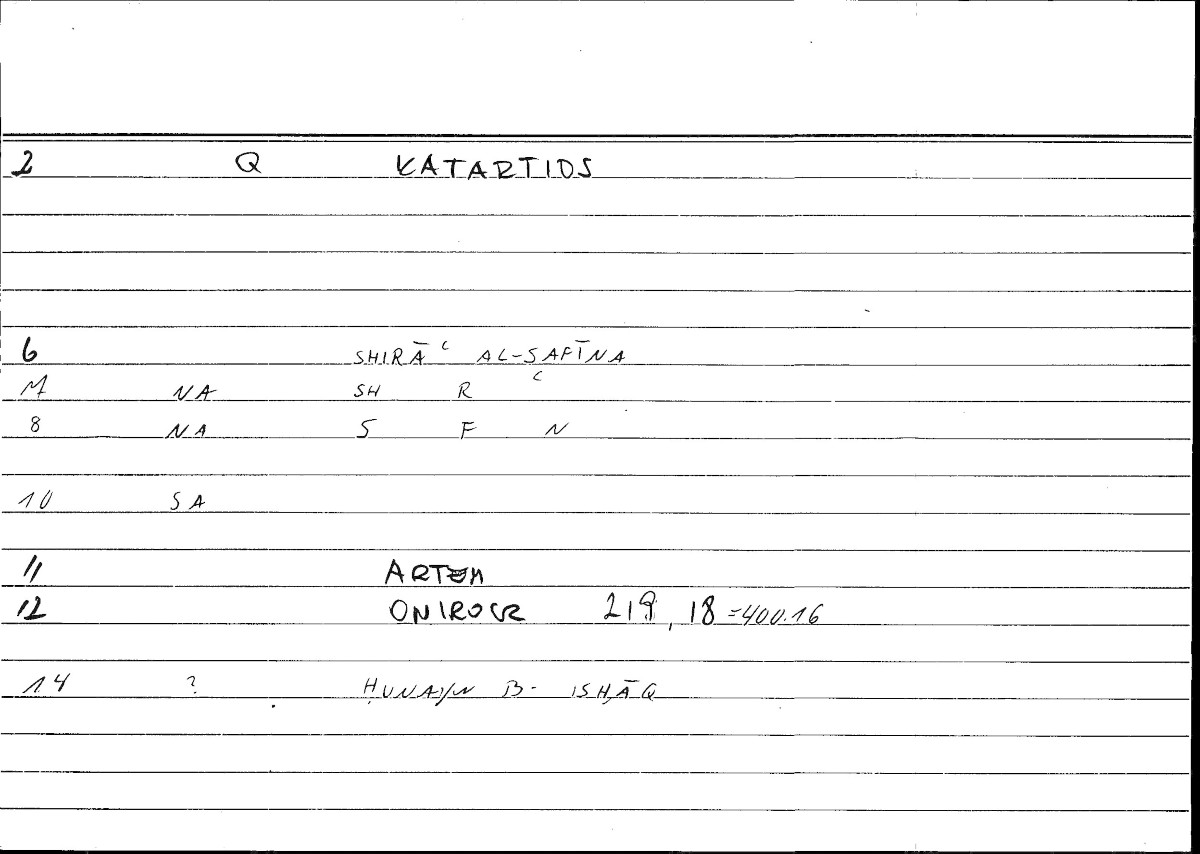 2 Q KATARTIOS
6 SHIRĀʿ AL-SAFĪNA
7 NA SH R ʿ
8 NA S F N
10 SA
11 ARTEM
12 ONIROCR 219, 18 =400.16
14 ? ḤUNAYN B- ISḤĀQ